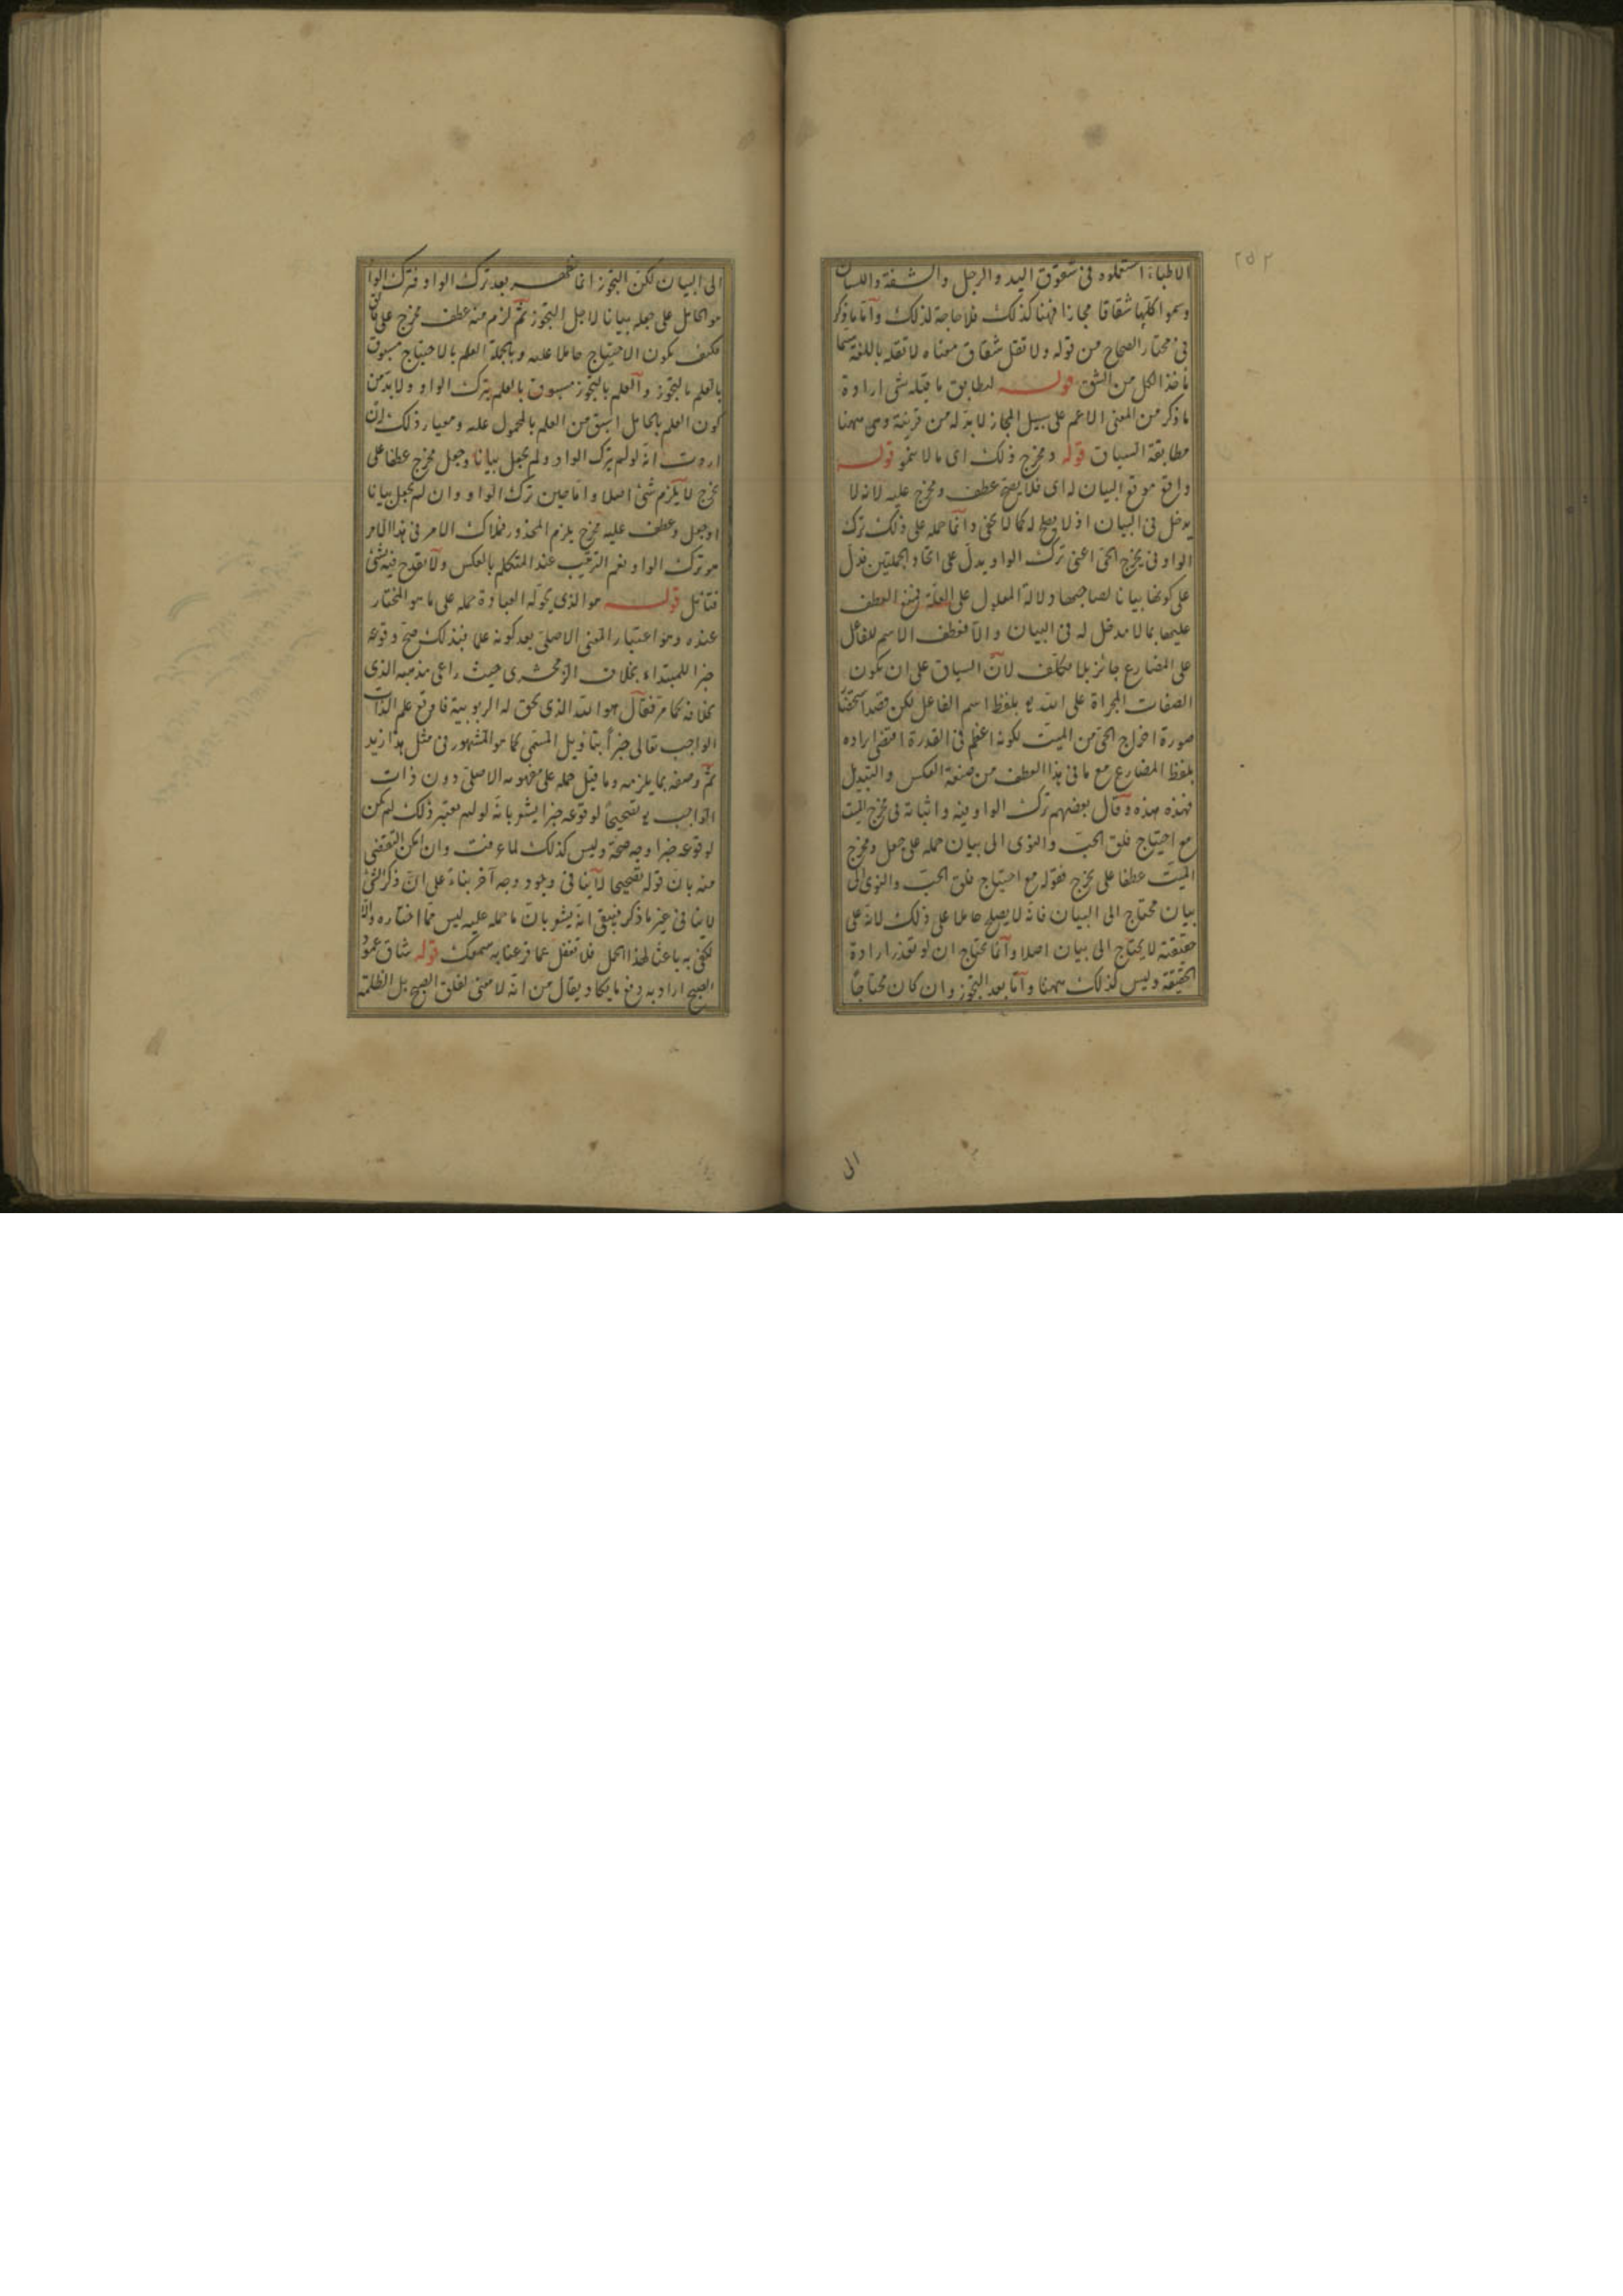 ٢٥٢
الاطباء استعملوه فى شقوق اليد والرجل والشفة واللسان
وسموا كلها شقاقا مجازا فههنا كذلك فلا حاجة لذلك واما ما ذكر
فى مختار الصحاح من قوله ولا تقل شقاق معناه لا تقله باللغة
الكل من الشق قوله ليطابق ما قبله شى ارادة
ما ذكر من المعنى الاعم على سبيل المجاز لا بد له من قرينة وهى ههنا
مطابقة السياق قوله ومخرج ذلك اى ما لا ينمو قوله
واقع موقع البيان له اى فلا يصح عطف ومخرج عليه لانه لا
يدخل فى البيان اذ لا يصلح له كما لا يخفى وانما حمله على ذلك ترك
الواو فى يخرج الحى اعنى ترك الواو يدل على اتحاد الجملتين فدل
على كونها بيانا لصاحبها ودلالة المعلول على العلة فمنع العطف
عليها بما لا مدخل له فى البيان والا فعطف الاسم للفاعل
على المضارع جائز بلا تكلف لان السياق على ان يكون
الصفات المجراة على الله بلفظ اسم الفاعل لكن قصد
صورة اخراج الحى من الميت لكونه اعظم فى القدرة اقتضى ايراده
بلفظ المضارع مع ما فى هذا العطف من صنعة العكس والتبديل
فهذه هذه وقال بعضهم ترك الواو فيه واثباته فى مخرج الميت
مع احتياج فلق الحب والنوى الى بيان حمله على جعل ومخرج
الميت عطفا على يخرج فقوله مع احتياج فلق الحب والنوى الى
بيان محتاج الى البيان فانه لا يصلح حاملا على ذلك لانه على
حقيقته لا يحتاج الى بيان اصلا وانما يحتاج ان لو تعذر ارادة
الحقيقة وليس كذلك ههنا واما بعد التجوز وان كان محتاجا
الى
الى البيان لكن التجوز انما فهم بعد ترك الواو فترك الواو
هو الحامل على جعله بيانا لاجل التجوز ثم لزم منه عطف مخرج على
فكيف يكون الاحتياج حاملا عليه وبالجملة العلم بالاحتياج مسبوق
بالعلم بالتجوز والعلم بالتجوز مسبوق بالعلم بترك الواو ولا بد من
كون العلم بالحامل اسبق من العلم بالمحمول عليه ومعيار ذلك ان
اردت انه لو لم يترك الواو ولم يجعل بيانا وجعل مخرج عطفا على
يخرج لا يلزم شئ اصلا واما حين ترك الواو وان لم يجعل بيانا
او جعل وعطف عليه مخرج يلزم المحذور فملاك الامر فى هذا الامر
هو ترك الواو نعم الترتيب عند المتكلم بالعكس ولا يقدح فيه شئ
فتأمل قوله هو الذى يحق له العبادة حمله على ما هو المختار
عنده وهو اعتبار المعنى الاصلى بعد كونه علما فبذلك صح وقوعه
خبرا للمبتداء بخلاف الزمخشرى حيث راعى مذهبه الذى
بخلافه كما مر فقال هو الله الذى يحق له الربوبية فاوقع علم الذات
الواجب تعالى خبرا بتاويل المسمى كما هو المشهور فى مثل هذا زيد
ثم وصفه بما يلزمه وما قيل حمله على مفهومه الاصلى دون ذات
الواجب تصحيحا لوقوعه خبرا يشعر بانه لو لم يعتبر ذلك لم يكن
لوقوعه خبرا وجه صحة وليس كذلك لما عرفت وان امكن التفصى
منه بان قوله تصحيحا لا ينافى وجود وجه آخر بناء على ان ذكر الشئ
لا ينافى غير ما ذكر فيبقى انه يشعر بان ما حمله عليه ليس مما اختاره والا
لكفى به باعثا لهذا الحمل فلا تغفل عما قرعنا به سمعك قوله شاق عمود
الصبح اراد به دفع ما يكاد يقال من انه لا معنى لفلق الصبح بل الظلمة